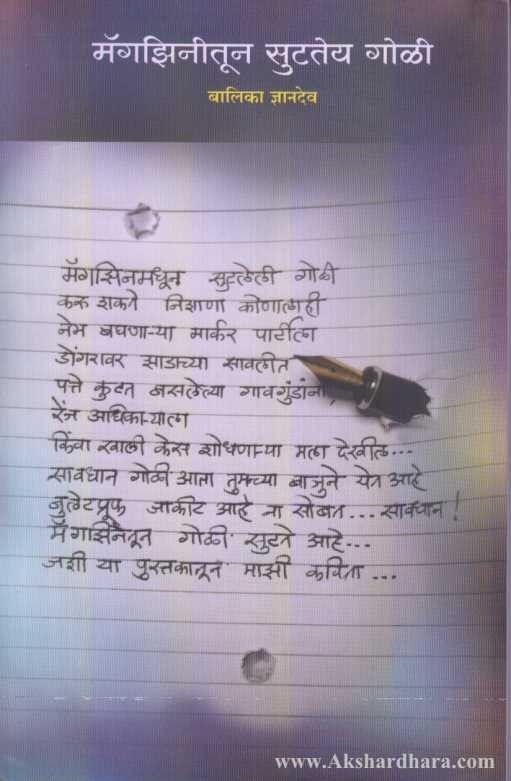 मॅगझिनीतून सुटतेय गोळी
बालिका ज्ञानदेव
मॅगझिनमधून सुटलेली गोळी
करू शकते निशाणा कोणालाही
नेम बघणाऱ्या मार्कर पार्टीला
डोंगरावर झाडाच्या सावलीत
पत्ते कुटत बसलेल्या गावगुंडांना,
रेंज अधिकाऱ्याला
किंवा खाली केस शोधणाऱ्या मला देखील...
सावधान गोळी आता तुमच्या बाजुने येत आहे
बुलेटप्रूफ जाकीट आहे ना सोबत... सावधान!
मॅगझिनेतून गोळी सुटते आहे...
जशी या पुस्तकातून माझी कविता ...
www.Akshardhara.com